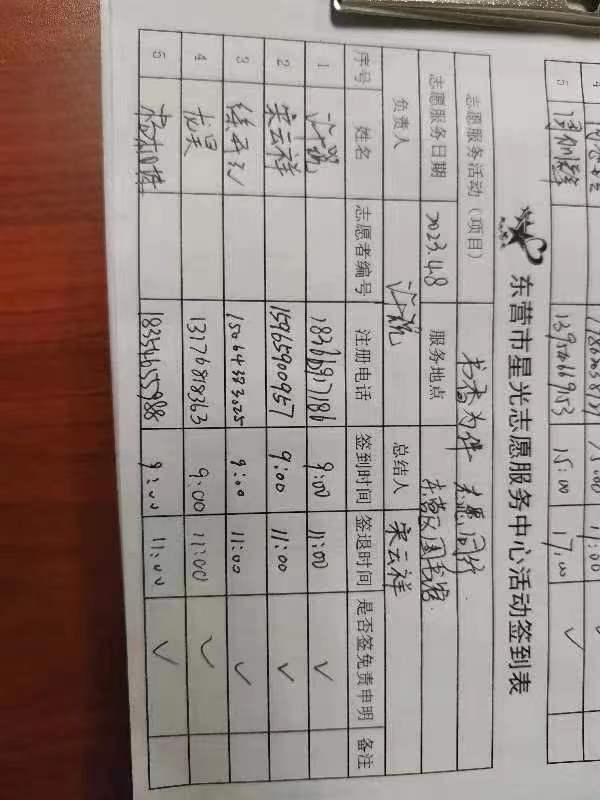 东营市星光志愿服务中心活动签到表
志愿服务活动（项目） 书香为伴 志愿同行
志愿服务日期 2023.4.8 服务地点 东营区图书馆
负责人 许悦 总结人 宋云祥
序号 姓名 志愿者编号 注册电话 签到时间 签退时间 是否签免责申明 备注
1 许悦 9:00 11:00 ✓
2 宋云祥 15965900957 9:00 11:00 ✓
3 15064383525 9:00 11:00 ✓
4 尤昊 13176818363 9:00 11:00 ✓
5 18354655988 9:00 11:00 ✓
4 15:00 17:00
5 15:00 17:00 ✓